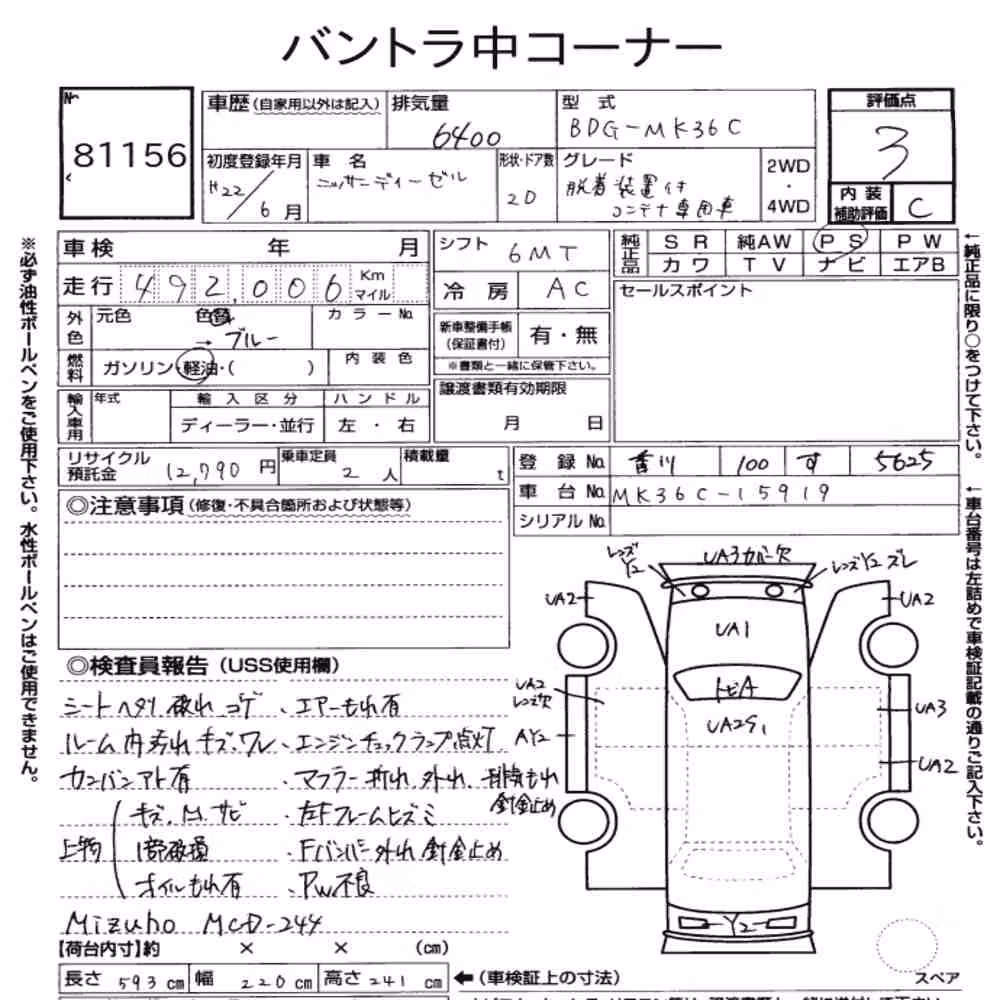 バントラ中コーナー
No
81156
車歴(自家用以外は記入)
排気量
6400
型式
BDG-MK36C
評価点
3
内装
補助評価
C
初度登録年月
H22/6月
車名
ニッサンディーゼル
形状・ドア数
2D
グレード
脱着装置付
コンテナ専用車
2WD
・
4WD
車検 年 月
走行 492,006 Km
マイル
シフト
6MT
冷房
AC
純正品
SR 純AW PS PW
カワ TV ナビ エアB
外色
元色
色替
→ブルー
カラーNo.
新車整備手帳
(保証書付)
有・無
※書類と一緒に保管下さい。
セールスポイント
燃料
ガソリン・軽油・( )
内装色
譲渡書類有効期限
月 日
輸入車用
年式
輸入区分
ディーラー・並行
ハンドル
左・右
リサイクル
預託金
12,790円
乗車定員
2人
積載量
t
登録No. 香川 100 す 5625
車台No. MK36C-15919
シリアルNo.
◎注意事項(修復・不具合箇所および状態等)
※必ず油性ボールペンをご使用下さい。水性ボールペンはご使用できません。
←純正品に限り○をつけて下さい。
←車台番号は左詰めで車検証記載の通りご記入下さい。
◎検査員報告(USS使用欄)
シートヘタリ破れコゲ・エアーもれ有
ルーム内汚れキズ、ワレ・エンジンチェックランプ点灯
カンバンアト有・マフラー折れ、外れ、排気もれ
針金止め
上物
キズ、凹、サビ・左Fフレームヒズミ
1部破損・Fバンパー外れ針金止め
オイルもれ有・PW不良
Mizuho MCD-244
レンズY2
UA3カバー欠
レンズY2ズレ
UA2
UA2
UA1
UA2
レンズ欠
トビA
UA2S1
UA3
AY2
UA2
Y2
スペア
【荷台内寸】約 × × (cm)
長さ 593cm 幅 220cm 高さ 241cm
←(車検証上の寸法)